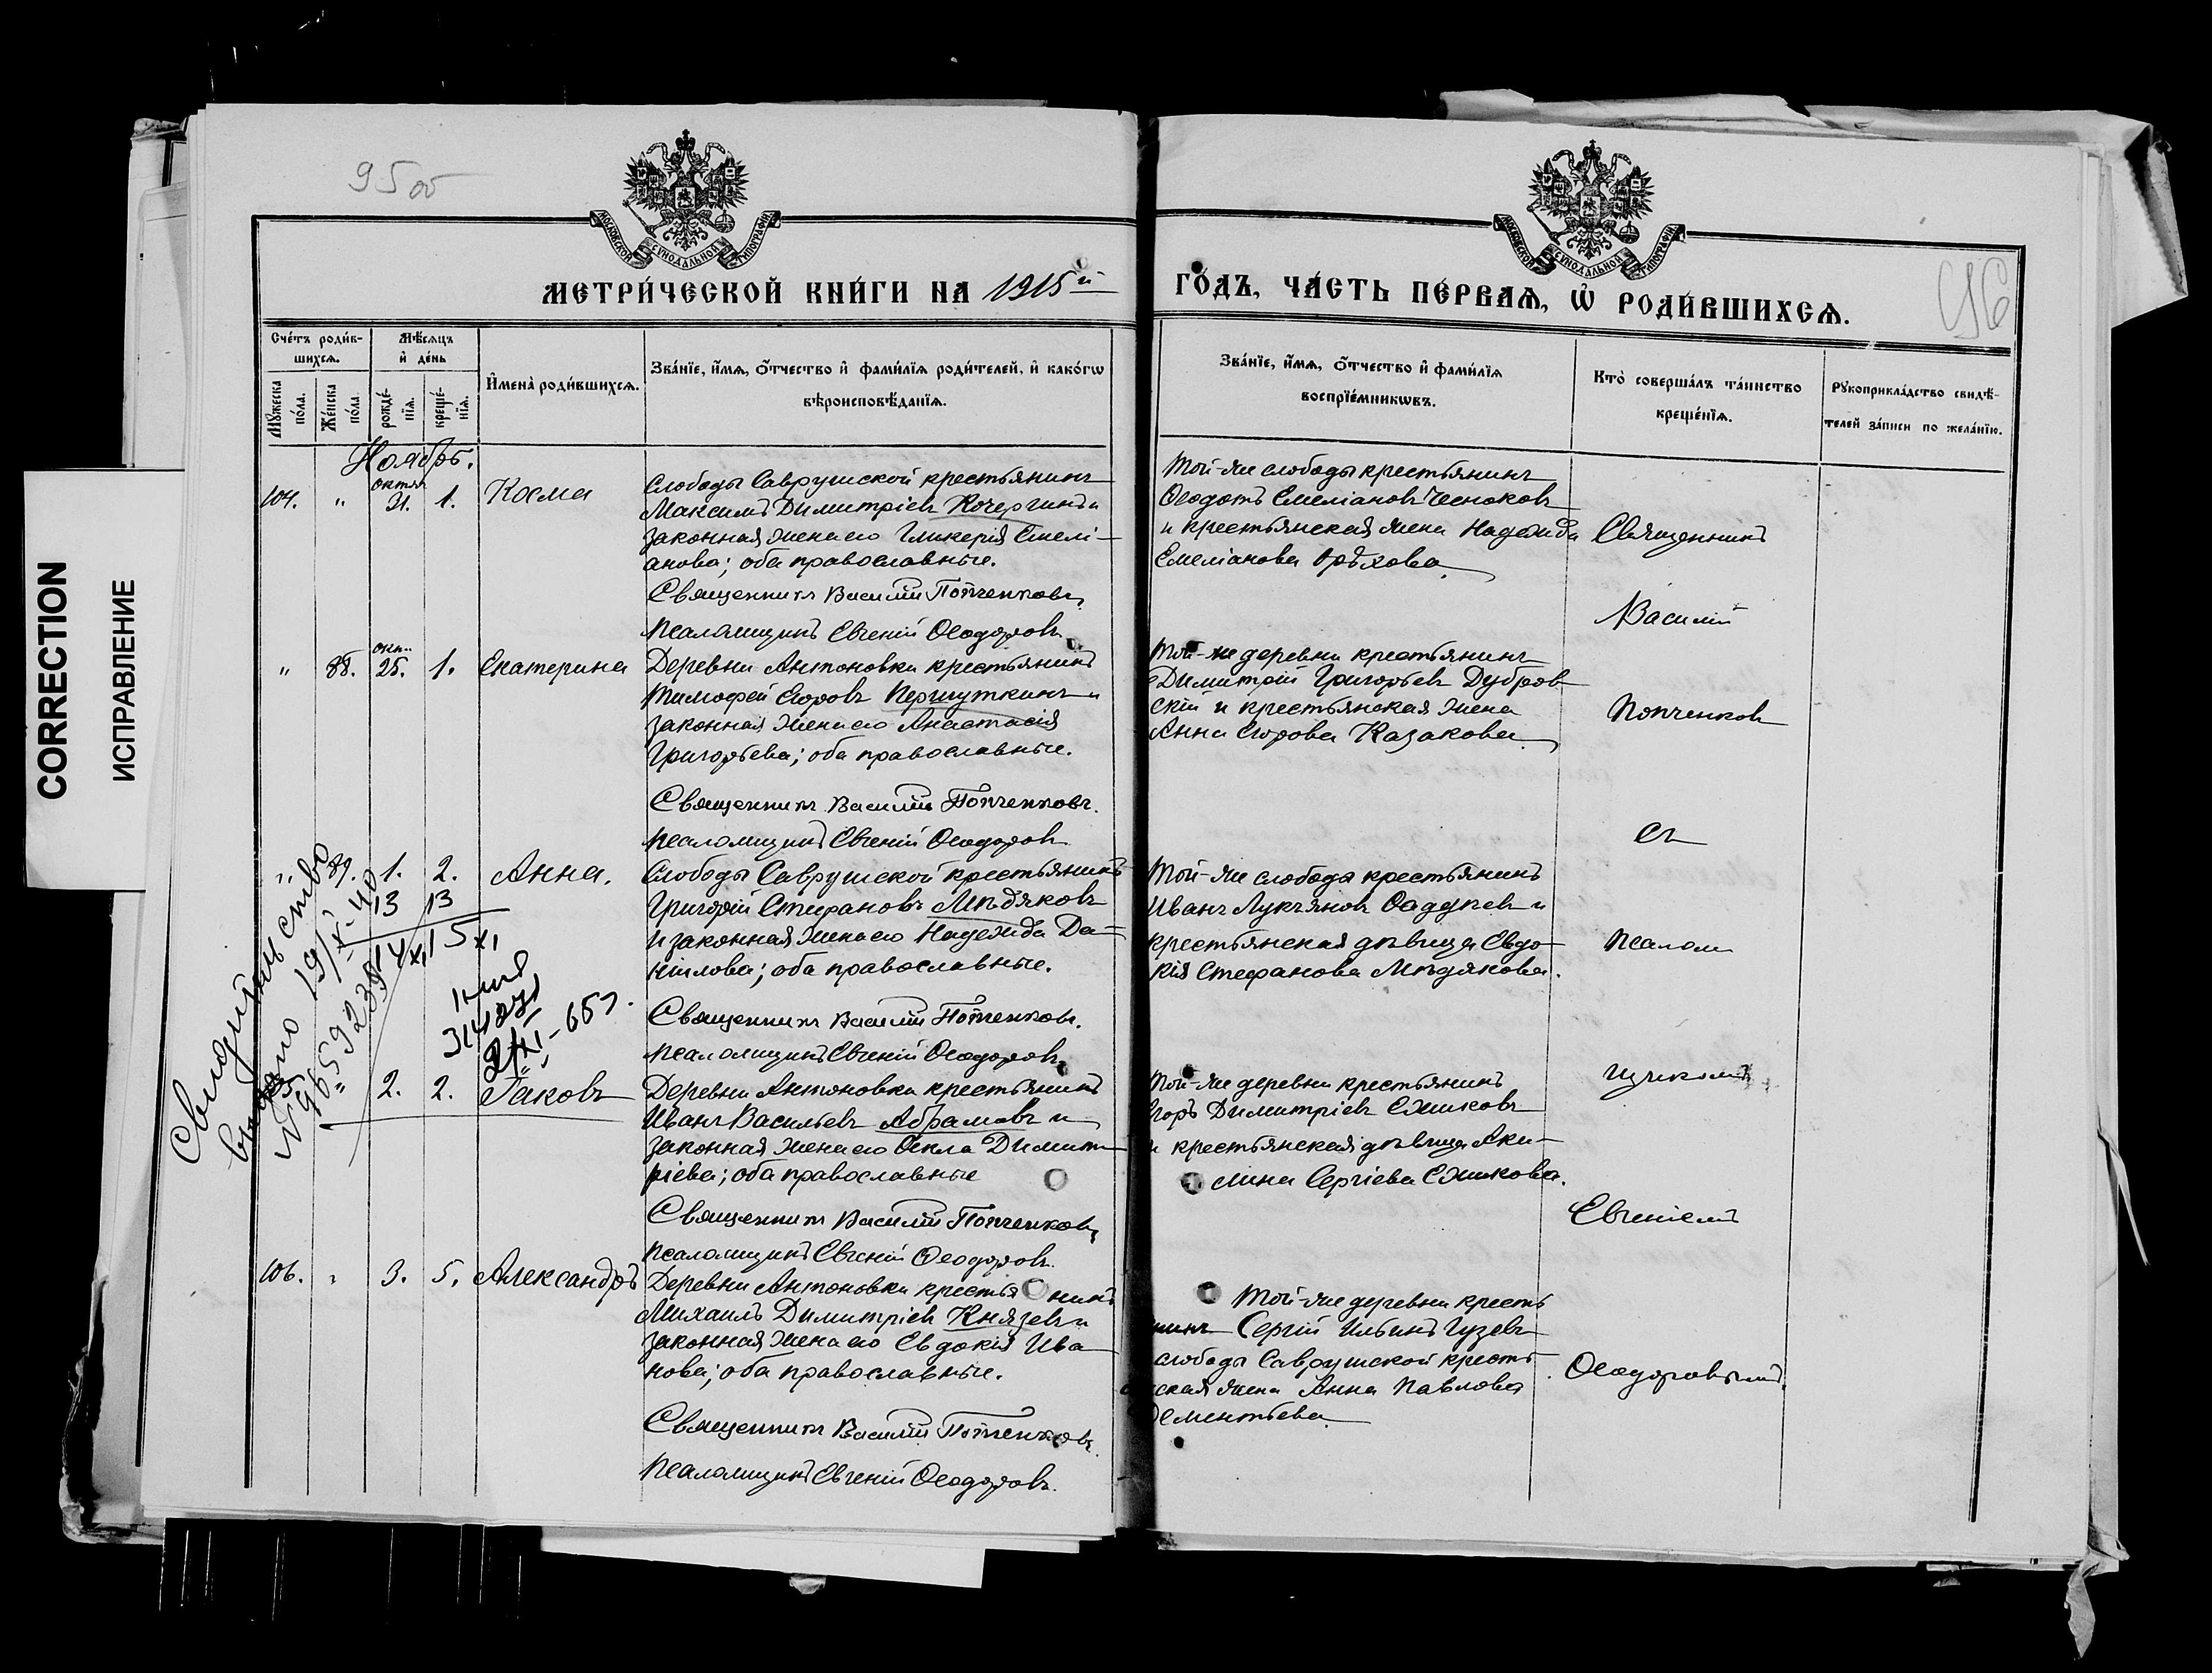 CORRECTION
ИСПРАВЛЕНИЕ
95 об
96
МОСКОВСКОЙ СѴНОДАЛЬНОЙ ТИПОГРАФІИ
МОСКОВСКОЙ СѴНОДАЛЬНОЙ ТИПОГРАФІИ
МЕТРИ́ЧЕСКОЙ КНИ́ГИ НА 1915й
ГО́ДЪ, ЧА́СТЬ ПЕ́РВАѦ, Ѡ҆ РОДИ́ВШИХСѦ.
Сче́тъ роди́в-
шихсѧ.
Мꙋ́жеска по́ла.
Же́нска по́ла.
Мѣ́сѧцъ
и҆ де́нь
рожде́-
нїѧ.
креще́-
нїѧ.
И҆мена̀ роди́вшихсѧ.
Зва́нїе, и҆́мѧ, ѻ҆́тчество и҆ фами́лїѧ роди́телей, и҆ како́гѡ
вѣроисповѣ́данїѧ.
Зва́нїе, и҆́мѧ, ѻ҆́тчество и҆ фами́лїѧ
воспрїе́мникѡвъ.
Кто̀ соверша́лъ та́инство
креще́нїѧ.
Рꙋкоприкла́дство свидѣ́-
телей за́писи по жела́нїю.
Ноябрь.
104. " октяб 31. 1. Косма
Слободы Саврушской крестьянинъ
Максимъ Димитріевъ Кочергинъ и
законная жена его Гликерія Емелі-
анова; оба православные.
Священникъ Василій Попченковъ
Псаломщикъ Евгеній Ѳеодоровъ
Той-же слободы крестьянинъ
Ѳеодотъ Емеліановъ Чесноковъ
и крестьянская жена Надежда
Емеліанова Орѣхова.
" 88. окт. 25. 1. Екатерина
Деревни Антоновки крестьянинъ
Тимофей Егоровъ Першуткинъ и
законная жена его Анастасія
Григорьева; оба православные.
Священникъ Василій Попченковъ.
Псаломщикъ Евгеній Ѳеодоровъ
Той-же деревни крестьянинъ
Димитрій Григорьевъ Дубров-
скій и крестьянская жена
Анна Егорова Казакова.
" 89. 1. 2. Анна.
13 13
14/XI 15 XI
Слободы Саврушской крестьянинъ
Григорій Стефановъ Мѣдяковъ
и законная жена его Надежда Да-
ніилова; оба православные.
Священникъ Василій Попченковъ.
Псаломщикъ Евгеній Ѳеодоровъ
Той-же слободы крестьянинъ
Иванъ Лукьяновъ Фадѣевъ и
крестьянская дѣвица Евдо-
кія Стефанова Мѣдякова.
Свидѣтельство
выдано 19/X-40
105. " 2. 2. Іаковъ
Деревни Антоновки крестьянинъ
Иванъ Васильевъ Абрамовъ и
законная жена его Ѳекла Димит-
ріева; оба православные
Священникъ Василій Попченковъ
Псаломщикъ Евгеній Ѳеодоровъ.
Той-же деревни крестьянинъ
Егоръ Димитріевъ Ежиковъ
и крестьянская дѣвица Аки-
лина Сергіева Ежикова.
106. " 3. 5. Александръ
Деревни Антоновки крестьянинъ
Михаилъ Димитріевъ Князевъ и
законная жена его Евдокія Ива-
нова; оба православные.
Священникъ Василій Попченковъ.
Псаломщикъ Евгеній Ѳеодоровъ.
Той-же деревни кресть
нинъ Сергій Ильинъ Гузевъ
слободы Саврушской кресть
ская жена Анна Павлова
Дементьева.
Священникъ
Василій
Попченковъ
съ
псалом
щикомъ
Евгеніемъ
Ѳеодоровымъ.